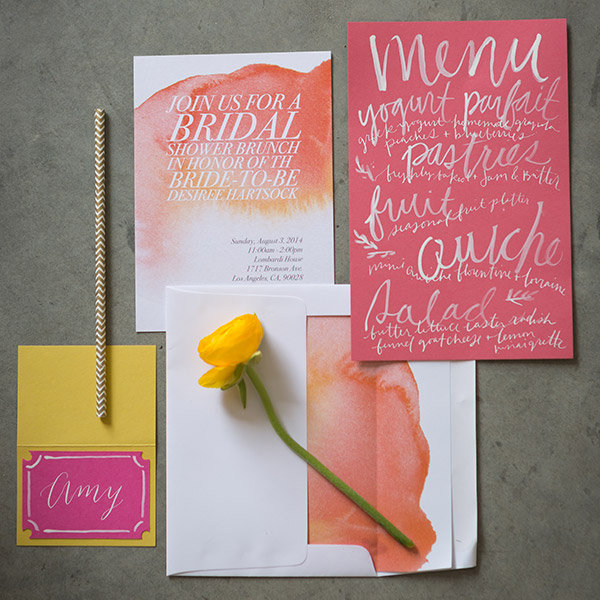 JOIN US FOR A
BRIDAL
SHOWER BRUNCH
IN HONOR OF TH
BRIDE-TO-BE
DESIREE HARTSOCK
Sunday, August 3, 2014
11:00am - 2:00pm
Lombardi House
1717 Bronson Ave.
Los Angeles, CA, 90028
menu
yogurt parfait
greek yogurt homemade granola
peaches + blueberries
pastries
freshly baked + jam & butter
fruit
seasonal fruit platter
Quiche
mini quiche florentine + lorraine
Salad
butter lettuce easter radish
fennel goat cheese + lemon
vinaigrette
Amy